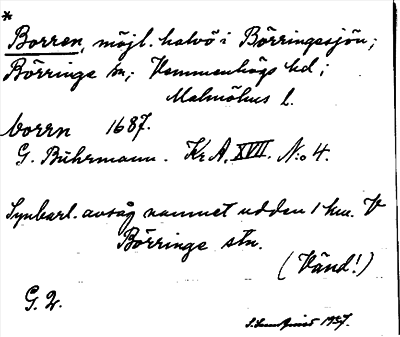 *
Borren, möjl. halvö i Börringesjön;
Börringe sn; Vemmenhögs hd;
Malmöhus l.
borrn 1687.
G. Buhrmann. Kr A. XVII. N:o 4.
Synbarl. avsåg namnet udden 1 km. V
Börringe stn.
(Vänd!)
G. 2.
1937.